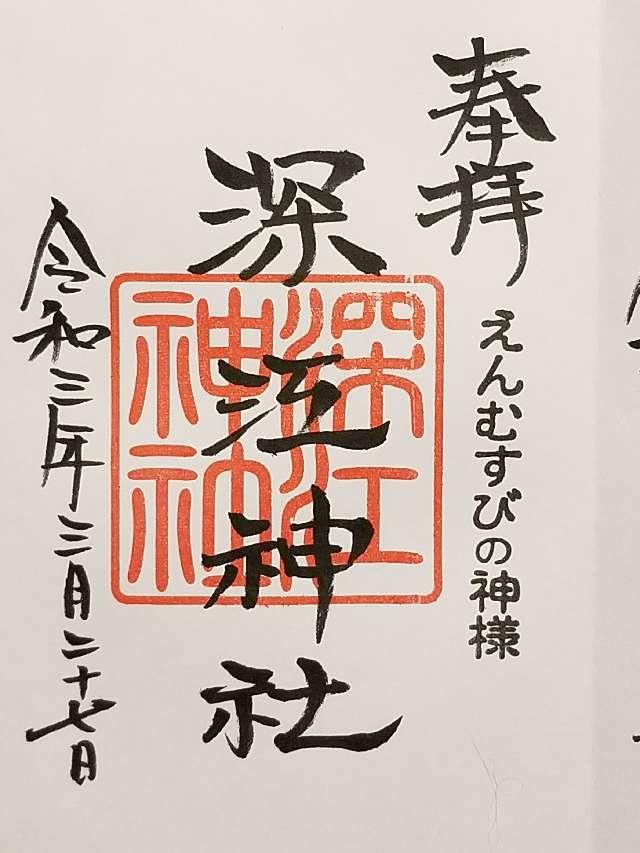 奉拝
えんむすびの神様
深江神社
深江
神社
令和三年三月二十七日